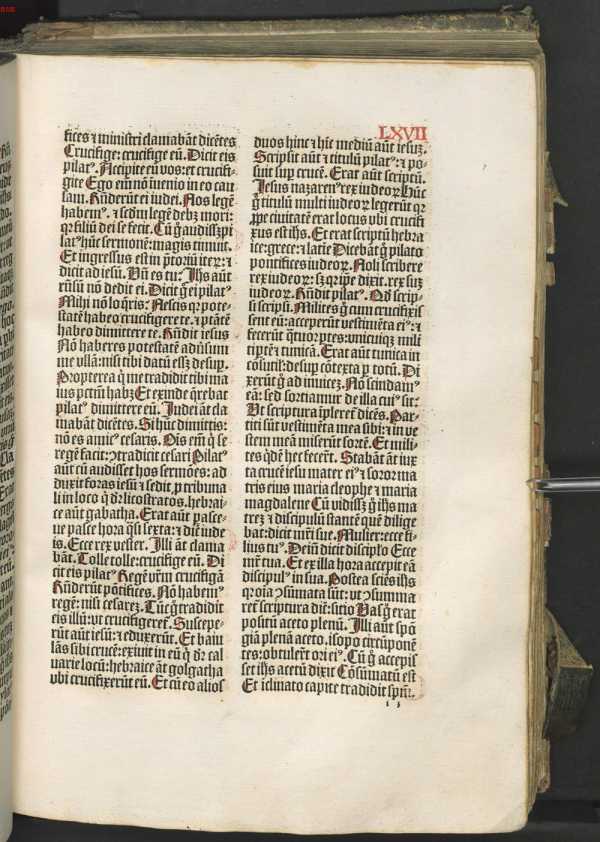 LXVII
fices ⁊ ministri clamabāt dicētes
Crucifige: crucifige eū. Dicit eis
pilatꝰ. Accipite eū vos: et crucifi-
gite Ego em̄ nō īuenio in eo cau
sam. Rn̄derūt ei iudei. Nos legē
habemꝰ. ⁊ scdm̄ legē debꝫ mori:
qꝛ filiū dei se fecit. Cū g̊ audissꝫ pi
latꝰ hūc sermonē: magis timuit.
Et ingressus est in p̄toriū iteꝝ: ⁊
dicit ad iesū. Vn̄ es tu: Jhs aūt
rn̄sū nō dedit ei. Dicit g̊ ei pilatꝰ
Mihi nō loq̄ris: Nescis qꝛ pote-
statē habeo crucifigere te. ⁊ ptātē
habeo dimittere te. Rn̄dit iesus
Nō haberes potestatē adūsum
me vllā: nisi tibi datū essꝫ desup̱.
Propterea q̇ me tradidit tibi ma
ius pctm̄ habꝫ Et exinde q̄rebat
pilatꝰ dimittere eū. Judei āt cla
mabāt dicētes. Si hūc dimittis:
nō es amicꝰ cesaris. Oīs em̄ q̇ se
regē facit: ꝯtradicit cesari Pilatꝰ
aūt cū audisset hos sermōes: ad
duxit foras iesū ⁊ sedit, ꝓ tribuna
li in loco q̇ dr̄ licostratos. hebrai-
ce aūt gabatha. Erat aūt pasce-
ue pasce hora q̄si sexta: ⁊ dic̄ iude
is. Ecce rex vester. Illi āt clama
bāt. Tolle tolle: crucifige eū. Di
cit eis pilatꝰ Regē vr̄m crucifigā
Rn̄derūt pōtifices. Nō habemꝰ
regē: nisi cesarez. Tūc g̊ tradidit
eis illū: vt crucifigeretꝰ. Suscepe-
rūt aūt iesū: ⁊ eduxerūt. Et baiu
lās sibi crucē: exiuit in eū q̇ dr̄ cal
uarie locū: hebraice āt golgatha
vbi crucifixerūt eū. Et cū eo alios
duos hinc ⁊ hīc mediū aūt iesuꝫ.
Scripsit aūt ⁊ titulū pilatꝰ: ⁊ po-
suit sup̱ crucē. Erat aūt scriptū.
Jesus nazarenꝰ rex iudeoꝝ Hūc
g̊ titulū multi iudeoꝝ legerūt qꝛ
ꝓpe ciuitatē erat locus vbi crucifi
xus est ihs. Et erat scriptū hebra
ice: grece: ⁊ latie Dicebāt g̊ pilato
pontifices iudeoꝝ. Noli scribere
rex iudeoꝝ: sꝫ qꝛ ip̄e dixit. rex suꝫ
iudeoꝝ. Rn̄dit pilatꝰ. Qd̄ scrip-
si scripsi. Milites g̊ cum crucifixis
sent eū: acceperūt vestimēta eiꝰ: ⁊
fecerūt q̄tuor ptes: vnicuiqꝫ mili
ti ptē ⁊ tunicā. Erat aūt tunica in
cōsutil: desup̱ cōtexta p̱ totū. Di
xerūt g̊ ad inuicez. Nō scindamꝰ
eā: sed sortiamur de illa cuiꝰ sit:
Vt scriptura īpleret dicēs. Par-
titi sūt vestimēta mea sibi: ⁊ in ve
stem meā miserūt sortē. Et mili-
tes q̇dē hec fecerūt. Stabāt āt iux
ta crucē iesu mater eiꝰ ⁊ soror ma
tris eius maria cleophe ⁊ maria
magdalene Cū vidissꝫ g̊ ihs ma
trez ⁊ discipulū stantē quē dilige
bat: dicit mr̄i sue. Mulier: ecce fi-
lius tuꝰ. Dein̄ dicit discipl̄o Ecce
mr̄ tua. Et ex illa hora accepit eā
discipulꝰ in sua. Postea sciēs ihs
qꝛ oīa ꝯsumata sūt: vt ꝯsumma
ret̄ scriptura dix̄: sitio Vas g̊ erat
positū aceto plenū. Illi aūt spō
giā plenā aceto. isopo circūponē
tes: obtulerūt ori eiꝰ. Cū g̊ accepis
set ihs acetū dixit Cōsumatū est
Et īclinato capite tradidit spm̄.